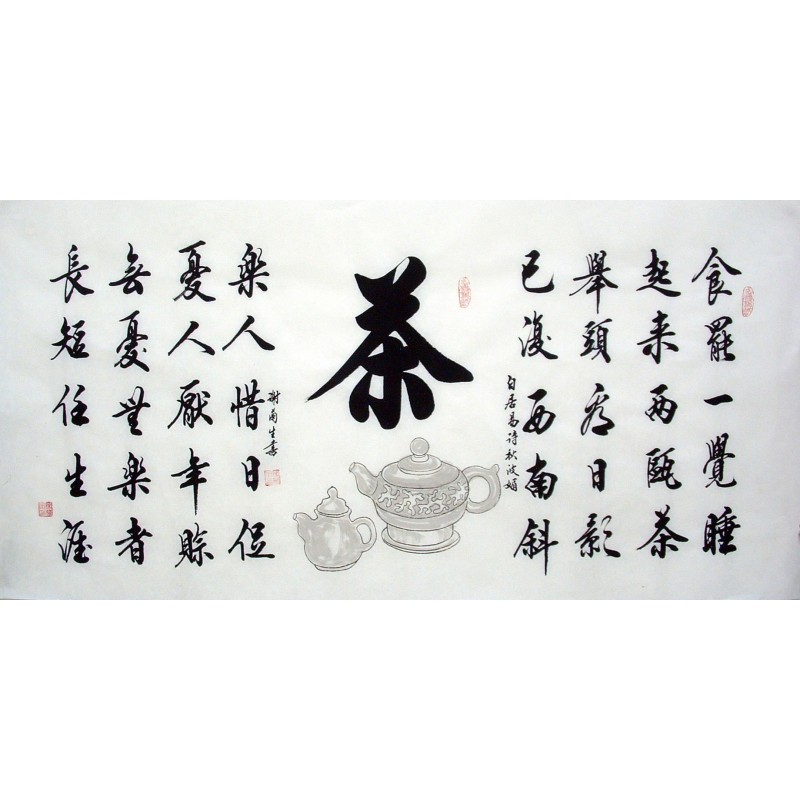 食罷一覺睡
起来两甌茶
舉頭看日影
已復西南斜
白居易诗秋波娟
茶
樂人惜日促
憂人厭年賒
無憂無樂者
長短任生涯